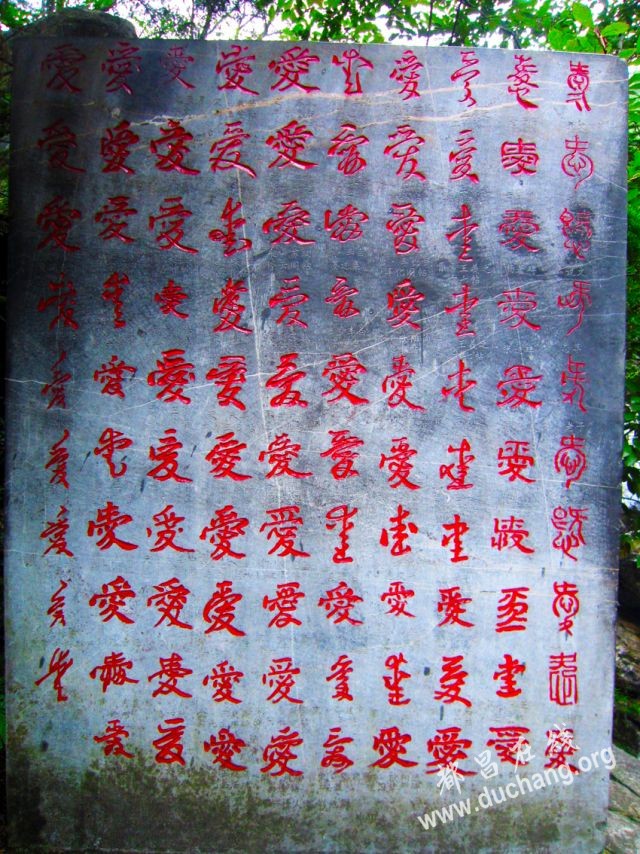 愛愛愛愛愛愛愛愛愛愛
愛愛愛愛愛愛愛愛愛愛
愛愛愛愛愛愛愛愛愛愛
愛愛愛愛愛愛愛愛愛愛
愛愛愛愛愛愛愛愛愛愛
愛愛愛愛愛愛愛愛愛愛
愛愛愛愛愛愛愛愛愛愛
愛愛愛愛愛愛愛愛愛愛
愛愛愛愛愛愛愛愛愛愛
愛愛愛愛愛愛愛愛愛
都昌在线
www.duchang.org